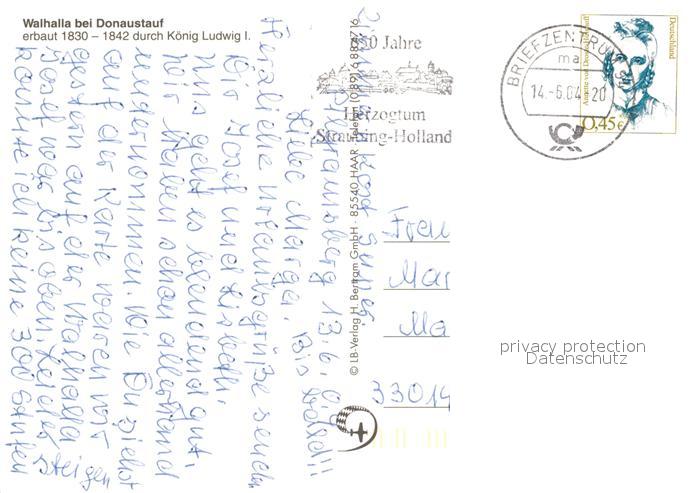 Walhalla bei Donaustauf
erbaut 1830 – 1842 durch König Ludwig I.
13.6.
Liebe Marga,
Herzliche Urlaubsgrüße senden
Dir Josef und
Uns geht es blendend gut.
Wir haben schon allerhand
unternommen. Wie Du siehst
auf der Karte waren wir
gestern auf der Walhalla
Josef war bis oben. Leider
konnte ich keine 300 Stufen
steigen
Bis bald!!
© LB-Verlag H. Bertram GmbH · 85540 HAAR · Telefon (0 89)
50 Jahre
Herzogtum
Straubing-Holland
BRIEFZENTRUM
ma
14.-6.04-20
Deutschland
Annette von Droste-Hülshoff
0,45€
Frau
Mar
Ma
33014
privacy protection
Datenschutz